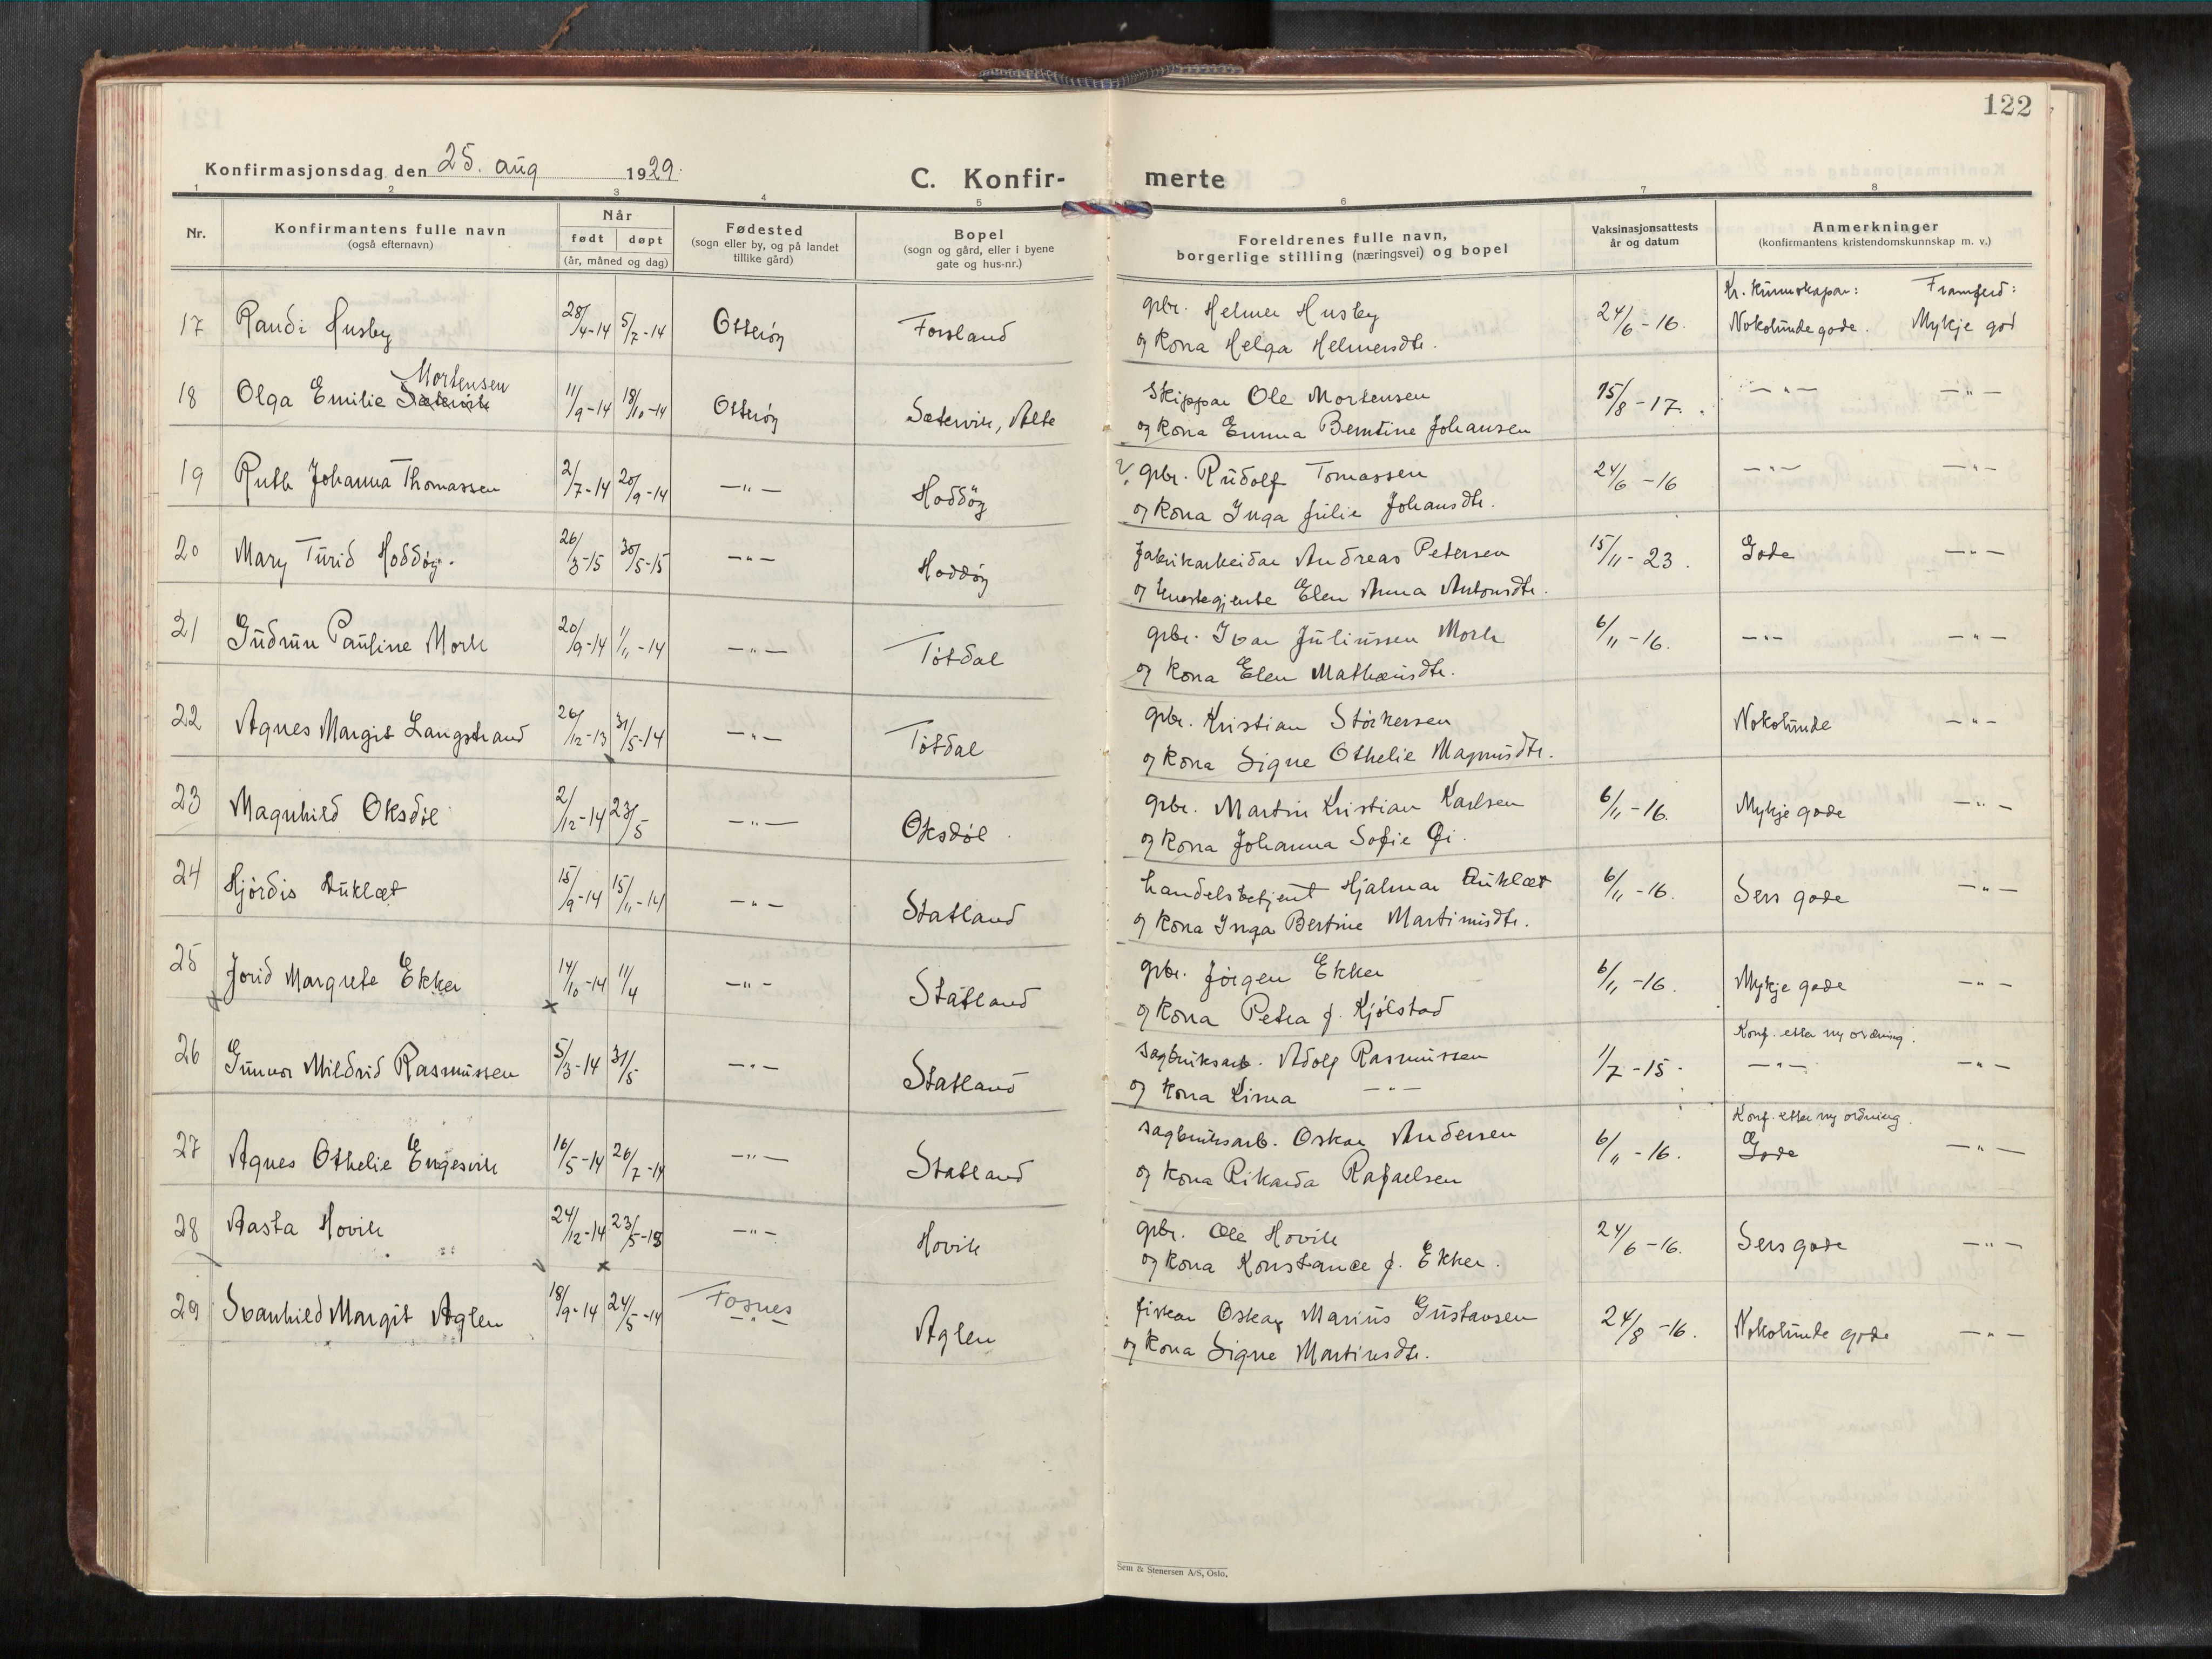 122
Konfirmasjonsdag den 25. aug 1929.
C. Konfir- merte
1 2 3 4 5 6 7 8
Nr.
Konfirmantens fulle navn
(også efternavn)
Når
født døpt
(år, måned og dag)
Fødested
(sogn eller by, og på landet
tillike gård)
Bopel
(sogn og gård, eller i byene
gate og hus-nr.)
Foreldrenes fulle navn,
borgerlige stilling (næringsvei) og bopel
Vaksinasjonsattests
år og datum
Anmerkninger
(konfirmantens kristendomskunnskap m. v.)
Kr. kunnskapar: Framferd:
17 Randi Husby 28/4-14 5/7-14 Otterøy Forsland gbr. Helmer Husby 24/6-16. Nokolunde gode. Mykje god
og kona Helga Helmersdtr.
Mortensen
18 Olga Emilie Sætervik 11/9-14 18/10-14 Otterøy Sætervik, Alte Skippar Ole Mortensen 15/8-17. —"— —"—
og kona Emma Berntine Johansen
19 Ruth Johanna Thomassen 2/7-14 20/9-14 —"— Hoddøy gbr. Rudolf Tomassen 24/6-16 —"— —"—
og kona Inga Julie Johansdtr.
20 Mary Turid Hoddøy. 26/3-15 30/5-15 —"— Hoddøy fabrikarbeidar Andreas Petersen 15/11-23. Gode —"—
og Elen Anna Antonsdtr.
21 Gudrun Pauline Mork 20/9-14 1/11-14 —"— Tøtdal gbr. Ivar Juliussen Mork 6/11-16. —"— —"—
og kona Elen Mathæusdtr.
22 Agnes Margit Langstrand 26/12-13 31/5-14 —"— Tøtdal gbr. Kristian Størkersen Nokolunde —"—
og kona Signe Othelie Magnusdtr.
23 Magnhild Oksdøl 2/12-14 23/5 —"— Oksdøl. gbr. Martin Kristian Karlsen 6/11-16. Mykje gode —"—
og kona Johanna Sofie Øi.
24 Hjørdis Duklæt 15/9-14 15/11-14 —"— Statland handelsbetjent Hjalmar Duklæt 6/11-16. Sers gode —"—
og kona Inga Bertine Martinusdtr.
25 Jorid Margrete Ekker 14/10-14 11/4 —"— Statland gbr. Jørgen Ekker 6/11-16. Mykje gode —"—
og kona Petra f. Kjølstad
Konf. etter ny ordning.
26 Gunvor Mildrid Rasmussen 5/3-14 31/5 —"— Statland sagbruksarb. Adolf Rasmussen 1/7-15. —"— —"—
og kona Lina —"—
Konf. etter ny ordning.
27 Agnes Othelie Engesvik 16/5-14 26/7-14 —"— Statland sagbruksarb. Oskar Andersen 6/11-16. Gode —"—
og kona Rikarda Rafaelsen
28 Aasta Hovik 24/12-14 23/5-15 —"— Hovik gbr. Ole Hovik 24/6-16. Sers gode —"—
og kona Konstance f. Ekker.
29 Svanhild Margit Aglen 18/9-14 24/5-14 Fosnes —"— Aglen fiskar Oskar Marius Gustavsen 24/8-16. Nokolunde gode —"—
og kona Signe Martinsdtr.
Sem & Stenersen A/S, Oslo.